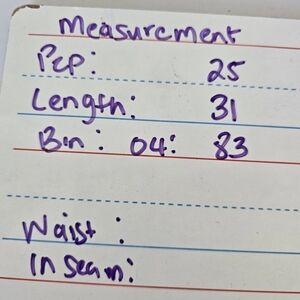 Measurement
P2P: 25
Length: 31
Bin: 04: 83
Waist:
Inseam: